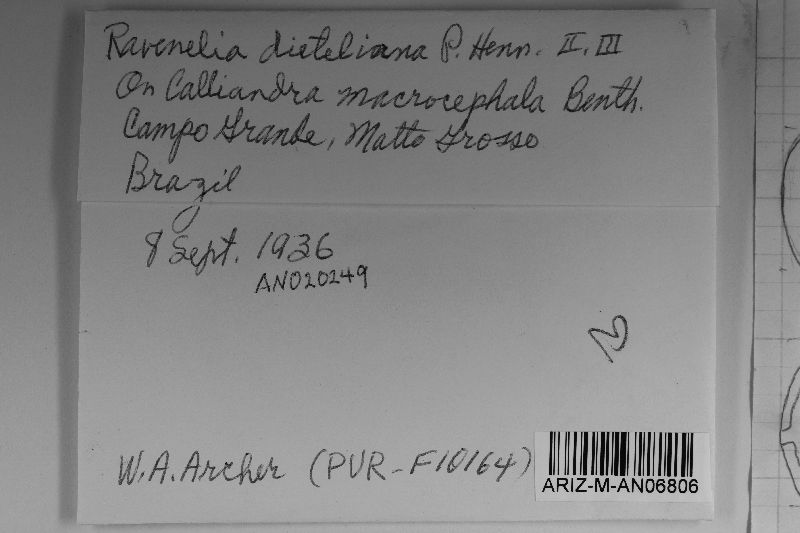 Ravenelia dieteliana P. Henn. II, III
On Calliandra macrocephala Benth.
Campo Grande, Matto Grosso
Brazil
8 Sept. 1936
AN020249
W.A. Archer (PUR-F10164)
ARIZ-M-AN06806